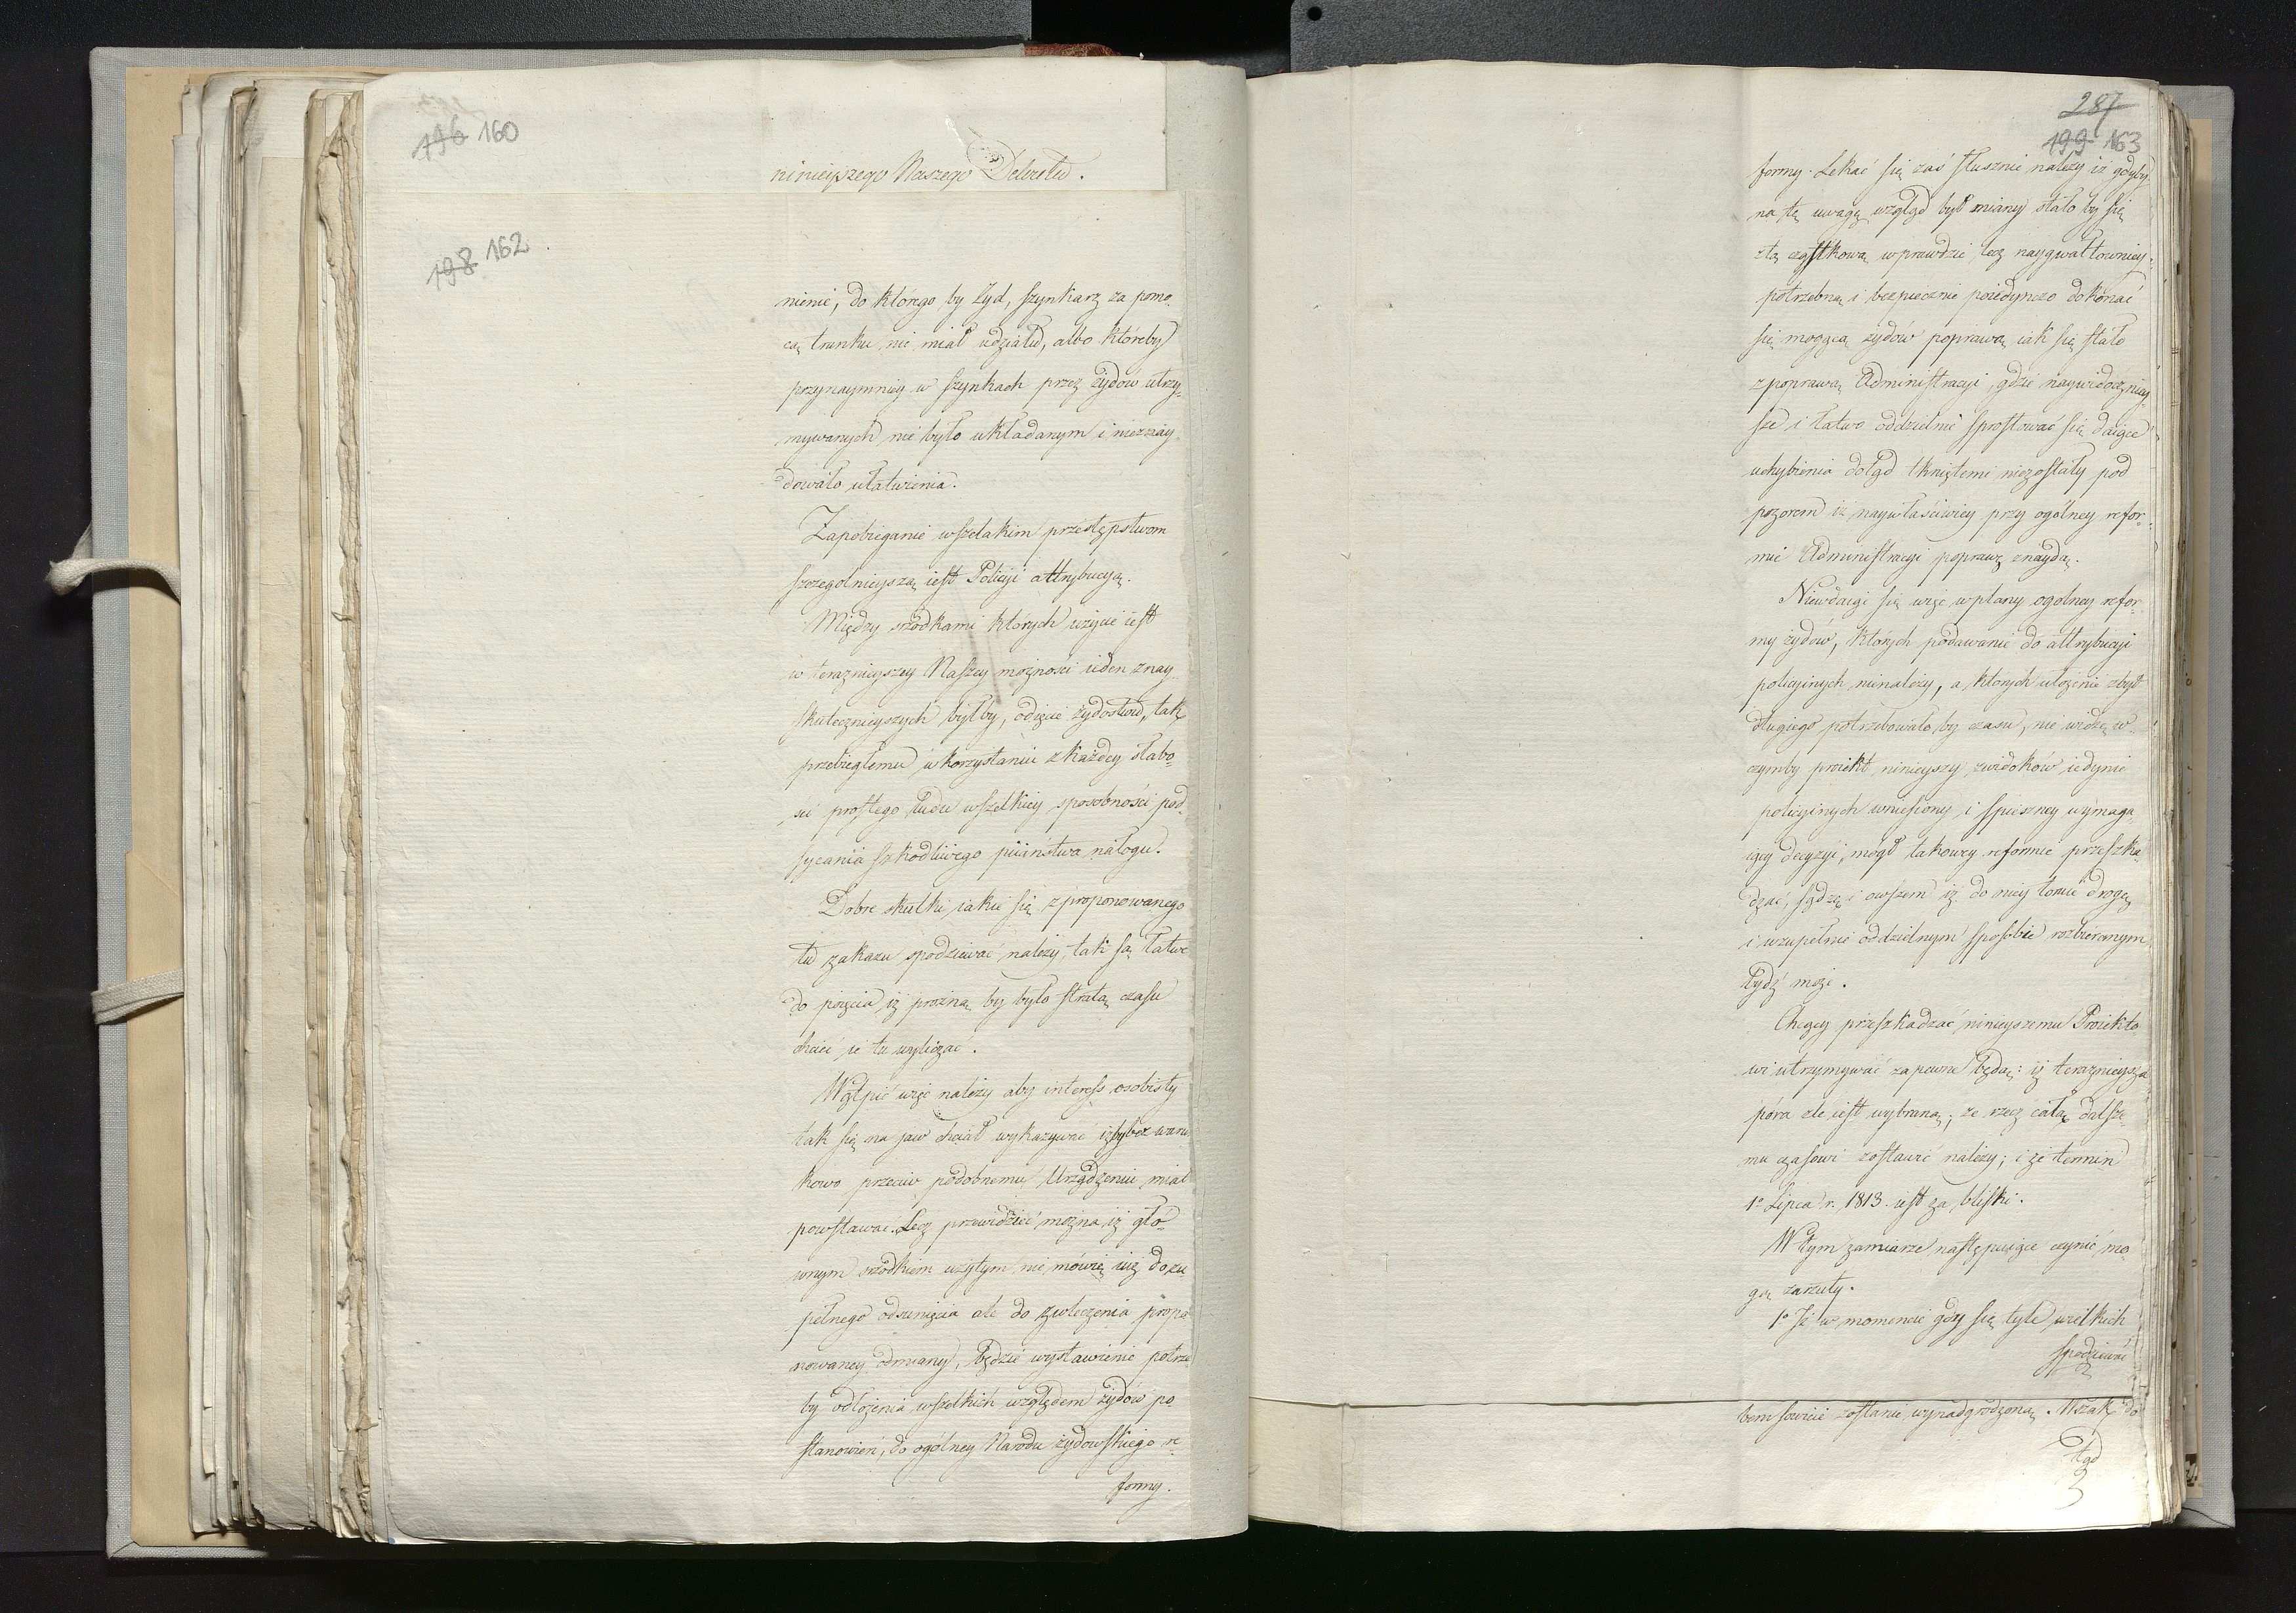 196 160
ninieyszego Naszego Dekretu.
198 162
nienie, do którego by Żyd, szynkarz za pomo-
cą trunku nie miał udziału, albo któreby
przynaymniey w szynkach przez Żydów utrzy-
mywanych nie było układanym i nieznay-
dowało ułatwienia.
Zapobieganie wszelakim przestępstwom
szczegolnieyszą iest Policyi attrybucyą.
Między srzodkami których użycie iest
w teraznieyszey Naszey możnosci ieden z nay-
skutecznieyszych byłby, odięcie żydostwu, tak
przebiegłemu w korzystaniu z każdey słabo-
sci prostego ludu wszelkiey sposobności pod-
sycania szkodliwego piiaństwa nałogu.
Dobre skutki iakie się z proponowanego
tu zakazu spodziewać należy, tak są łatwe
do poięcia iż prożną by było stratą czasu
chcieć ie tu wyliczać.
Wątpić więc należy aby interess osobisty
tak się na jaw chciał wykazywać iżby bezwarun-
kowo przeciw podobnemu Urządzeniu miał
powstawać. Lecz przewidzieć można iż głó-
wnym srzodkiem użytym nie mówię iuż do zu-
pełnego odsunięcia ale do zwleczenia propo-
nowaney odmiany, będzie wystawienie potrze-
by odłożenia wszelkich względem żydów po-
stanowień, do ogólney Narodu żydowskiego re-
formy.
287
199 163
formy. Lękać się zaś słusznie należy iż gdyby
na tę uwagę wzgląd był miany stało by się
z tą cząstkową wprawdzie lecz naygwałtowniey
potrzebną i bezpiecznie poiedynczo dokonać
się mogącą żydów poprawą iak się stało
z poprawą Administracyi, gdzie naywidocznieysze
i łatwo oddzielnie sprostować się daiące
uchybienia dotąd tkniętemi niezostały pod
pozorem iż naywłaściwiey przy ogólney refor-
mie Administracyi poprawę znaydą.
Niewdaiąc się więc w plany ogolney refor-
my żydów, których podawanie do attrybucyi
policyinych nienależy, a których ułożenie zbyt
długiego potrzebowało by czasu, nie widzę w
czymby proiekt ninieyszy z widoków iedynie
policyinych wniesiony, i spieszney wymaga-
iący decyzyi, mógł takowey reformie przeszka-
dzać, sądzę i owszem iż do niey tornie drogę
i w zupełnie oddzielnym sposobie rozbieranym
bydź może.
Chcący przeszkadzać ninieyszemu Proiekto-
wi utrzymywać zapewne będą: iż teraznieysza
pora zle iest wybraną; że rzecz całą dalsze-
mu czasowi zostawić należy; i że termin
1º Lipca r. 1813. iest za bliski.
W tym zamiarze następuiące czynić mo-
gą zarzuty.
1º Że w momencie gdy się tyle wielkich
spodziewać
bem sowicie zostanie wynadgrodzoną. Wszak do
tąd